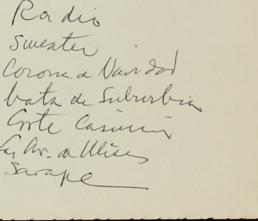 Radio
Sweater
Corona de Navidad
bata de Suburbia
Corte Casimir
Av. a Ulises
Sarape